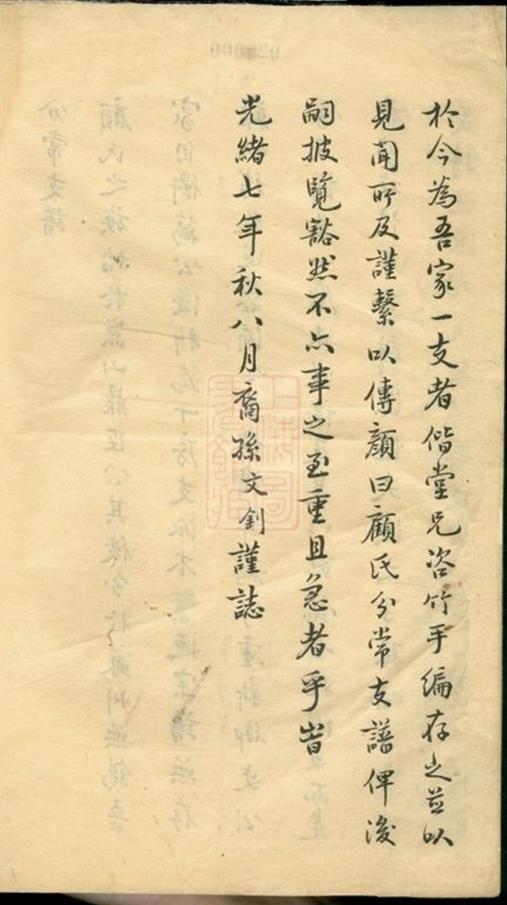 於今為吾家一支者偕堂兄咨竹手編存之並以
見聞所及謹繫以傳顏曰顧氏分常支譜俾後
嗣披覽豁然不亦事之至重且急者乎旹
光緒七年秋八月裔孫文釗謹誌